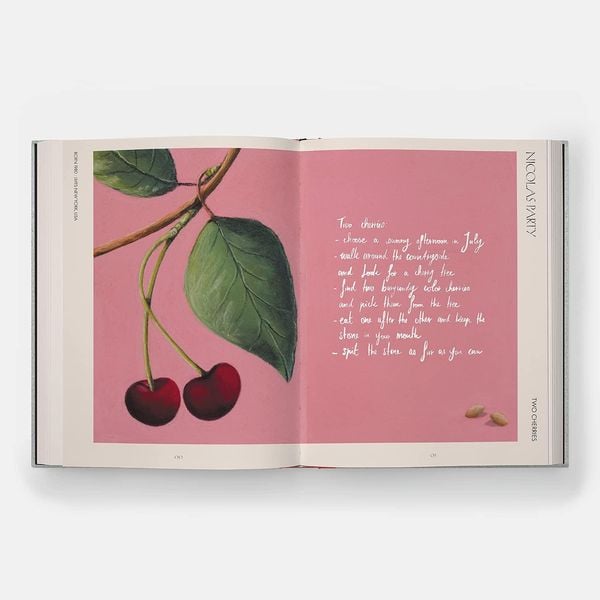 BORN 1980 . LIVES NEW YORK, USA
NICOLAS PARTY
Two cherries:
- choose a sunny afternoon in July
- walk around the countryside
and look for a cherry tree
- find two burgundy color cherries
and pick them from the tree
- eat one after the other and keep the
stone in your mouth
- spit the stone as far as you can
TWO CHERRIES